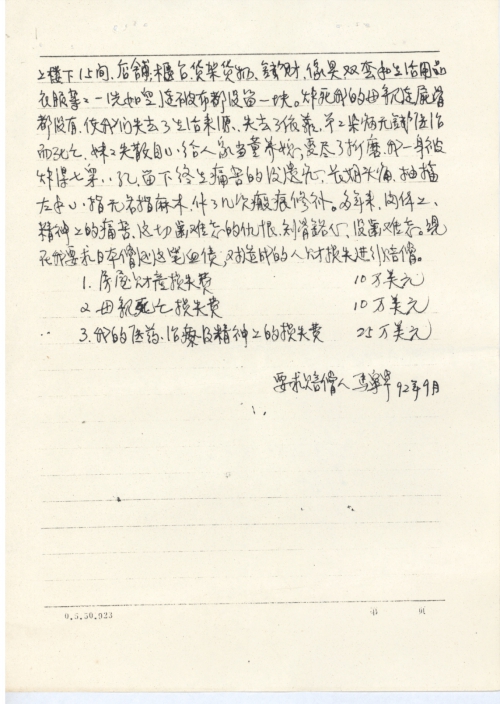 楼下15间、店铺、柜台、货架货物、钱财、傢具、双套和生活用品
衣服等等一洗如空连被布都没留一块。炸死我的母亲连屍骨
都没有，使我们失去了生活来源、失去了依靠。弟染病无钱医治
而死亡，妹失散，给人家当童养媳，受尽了折磨，我一身被
炸得七孔，留下终生痛苦的后遗症，长期头痛，抽搐
左手小指无名指麻木，作了几次瘢痕修补。多年来，肉体上、
精神上的痛苦，这切齿难忘的仇恨，刻骨铭心，没齿难忘。现
在我要求日本偿还这笔血债，对造成的人财损失进行赔偿。
1. 房屋财产损失费 10万美元
2. 母亲死亡损失费 10万美元
3. 我的医药、治疗及精神上的损失费 25万美元
要求赔偿人 92年9月
0.5.50.923 第 页